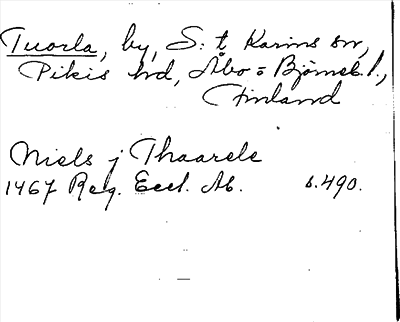 Tuorla, by, S:t Karins sn,
Pikis hd, Åbo = Björneb. l.,
Finland
Niels j Thaarele
1467 Reg. Eccl. Ab. s. 490.